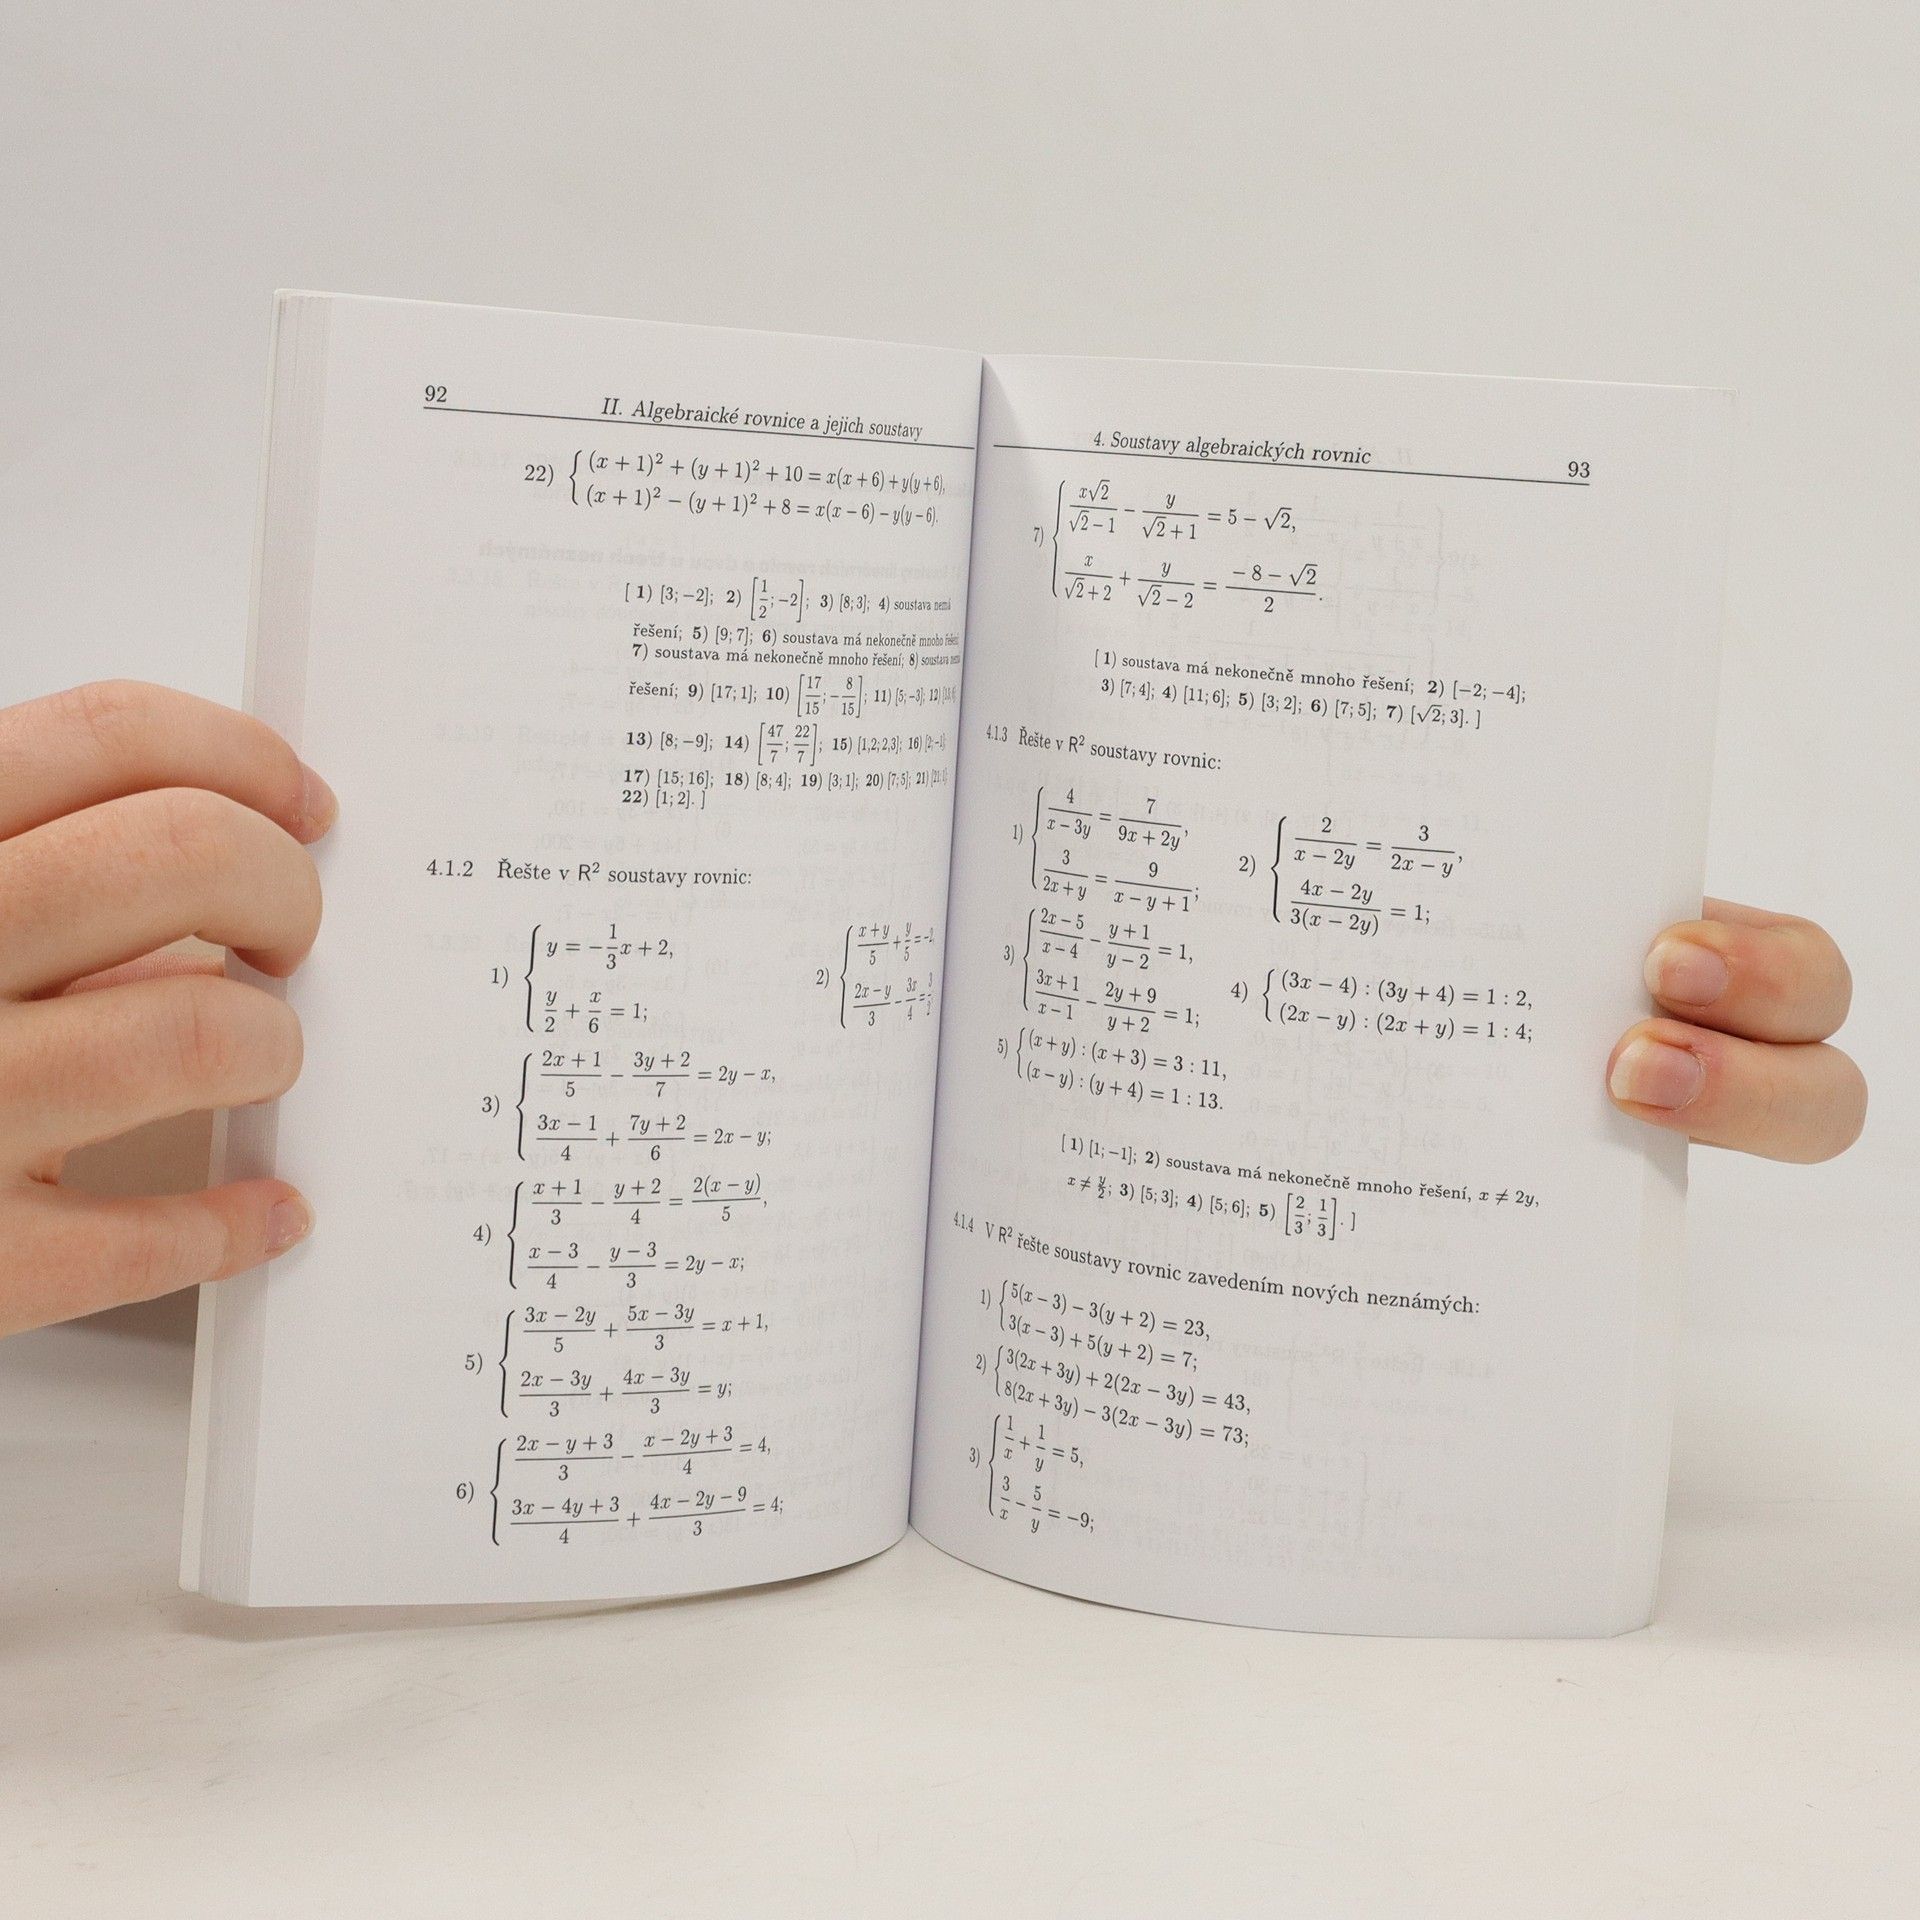 92
II. Algebraické rovnice a jejich soustavy
22) { (x + 1)² + (y + 1)² + 10 = x(x + 6) + y(y + 6),
(x + 1)² − (y + 1)² + 8 = x(x − 6) − y(y − 6).
[ 1) [3; −2]; 2) [1/2; −2]; 3) [8; 3]; 4) soustava nemá
řešení; 5) [9; 7]; 6) soustava má nekonečně mnoho
7) soustava má nekonečně mnoho řešení; 8) soustava
řešení; 9) [17; 1]; 10) [17/15; −8/15]; 11) [5; −3]; 12)
13) [8; −9]; 14) [47/7; 22/7]; 15) [1,2; 2,3]; 16) [2; −1];
17) [15; 16]; 18) [8; 4]; 19) [3; 1]; 20) [7; 5]; 21)
22) [1; 2]. ]
4.1.2 Řešte v R² soustavy rovnic:
1) { y = −1/3 x + 2,
y/2 + x/6 = 1;
2) { (x + y)/5 + y/5 = −2,
(2x − y)/3 − 3x/4 = 3/2
3) { (2x + 1)/5 − (3y + 2)/7 = 2y − x,
(3x − 1)/4 + (7y + 2)/6 = 2x − y;
4) { (x + 1)/3 − (y + 2)/4 = 2(x − y)/5,
(x − 3)/4 − (y − 3)/3 = 2y − x;
5) { (3x − 2y)/5 + (5x − 3y)/3 = x + 1,
(2x − 3y)/3 + (4x − 3y)/3 = y;
6) { (2x − y + 3)/3 − (x − 2y + 3)/4 = 4,
(3x − 4y + 3)/4 + (4x − 2y − 9)/3 = 4;
4. Soustavy algebraických rovnic
93
7) { x√2/(√2 − 1) − y/(√2 + 1) = 5 − √2,
x/(√2 + 2) + y/(√2 − 2) = (−8 − √2)/2.
[ 1) soustava má nekonečně mnoho řešení; 2) [−2; −4];
3) [7; 4]; 4) [11; 6]; 5) [3; 2]; 6) [7; 5]; 7) [√2; 3]. ]
4.1.3 Řešte v R² soustavy rovnic:
1) { 4/(x − 3y) = 7/(9x + 2y),
3/(2x + y) = 9/(x − y + 1);
2) { 2/(x − 2y) = 3/(2x − y),
(4x − 2y)/(3(x − 2y)) = 1;
3) { (2x − 5)/(x − 4) − (y + 1)/(y − 2) = 1,
(3x + 1)/(x − 1) − (2y + 9)/(y + 2) = 1;
4) { (3x − 4) : (3y + 4) = 1 : 2,
(2x − y) : (2x + y) = 1 : 4;
5) { (x + y) : (x + 3) = 3 : 11,
(x − y) : (y + 4) = 1 : 13.
[ 1) [1; −1]; 2) soustava má nekonečně mnoho řešení, x ≠ 2y,
x ≠ y/2; 3) [5; 3]; 4) [5; 6]; 5) [2/3; 1/3]. ]
4.1.4 V R² řešte soustavy rovnic zavedením nových neznámých:
1) { 5(x − 3) − 3(y + 2) = 23,
3(x − 3) + 5(y + 2) = 7;
2) { 3(2x + 3y) + 2(2x − 3y) = 43,
8(2x + 3y) − 3(2x − 3y) = 73;
3) { 1/x + 1/y = 5,
3/x − 5/y = −9;